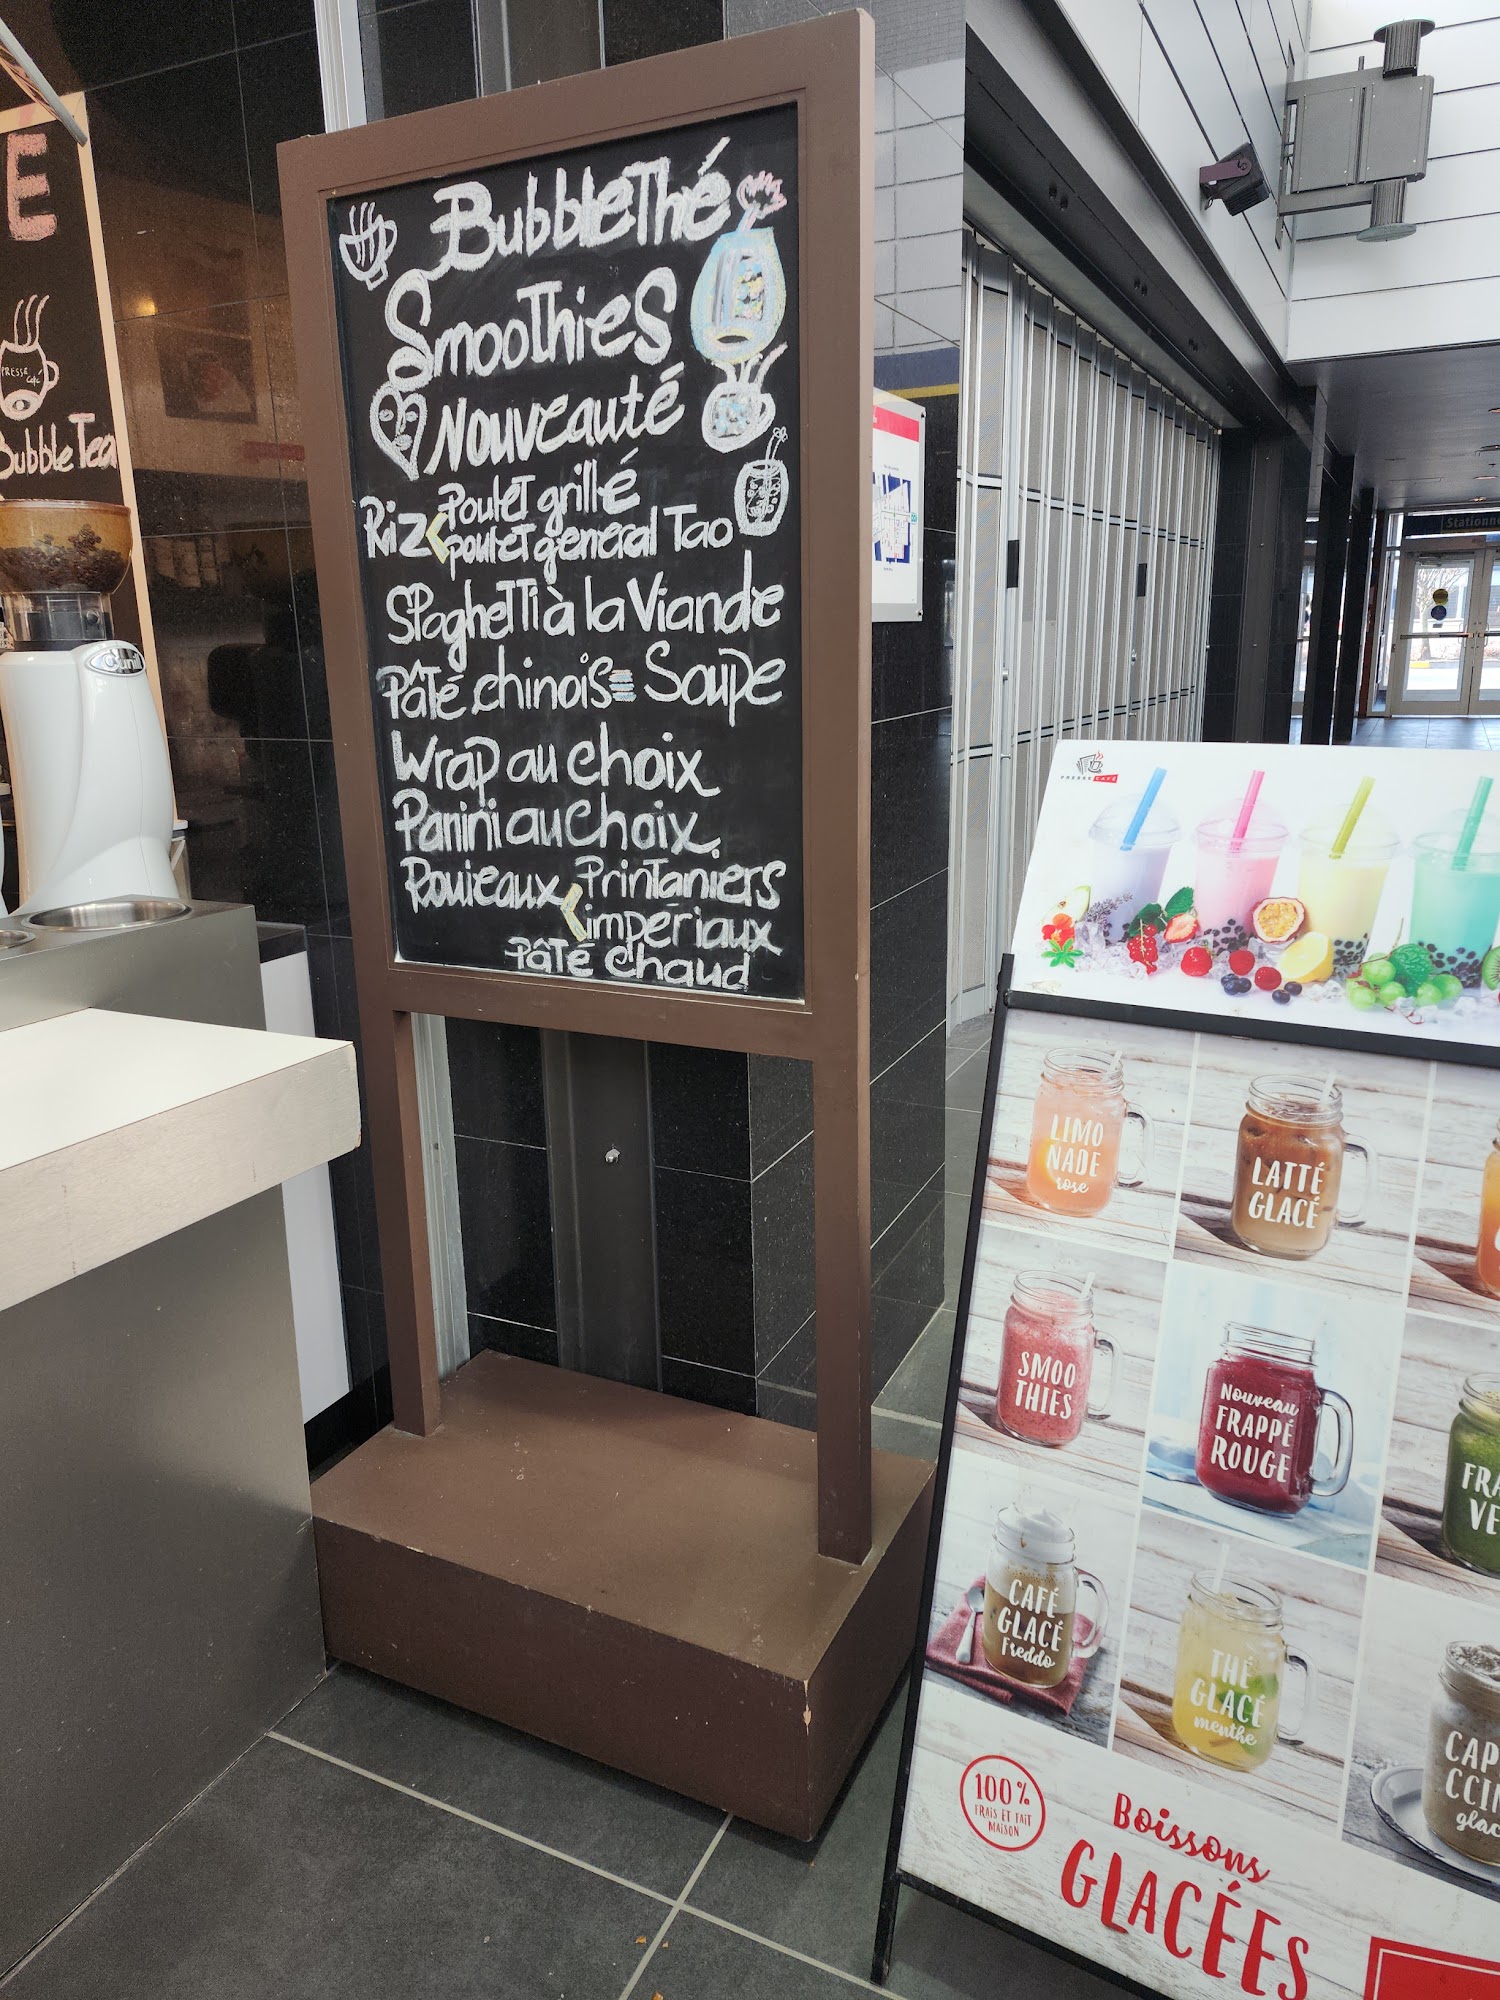 É
PRESSE
Café
Bubble Tea
Cunill
BubbleThé
Smoothies
Nouveauté
Riz < Poulet grillé
poulet général Tao
Spaghetti à la Viande
Pâté chinois Soupe
Wrap au choix
Panini au choix
Rouleaux < Printaniers
impériaux
Pâté chaud
Stationne
PRESSE CAFÉ
LIMO
NADE
rose
LATTÉ
GLACÉ
SMOO
THIES
Nouveau
FRAPPÉ
ROUGE
FRA
VE
CAFÉ
GLACÉ
Freddo
THÉ
GLACÉ
menthe
CAP
CCIN
glac
100%
FRAIS ET FAIT
MAISON
Boissons
GLACÉES